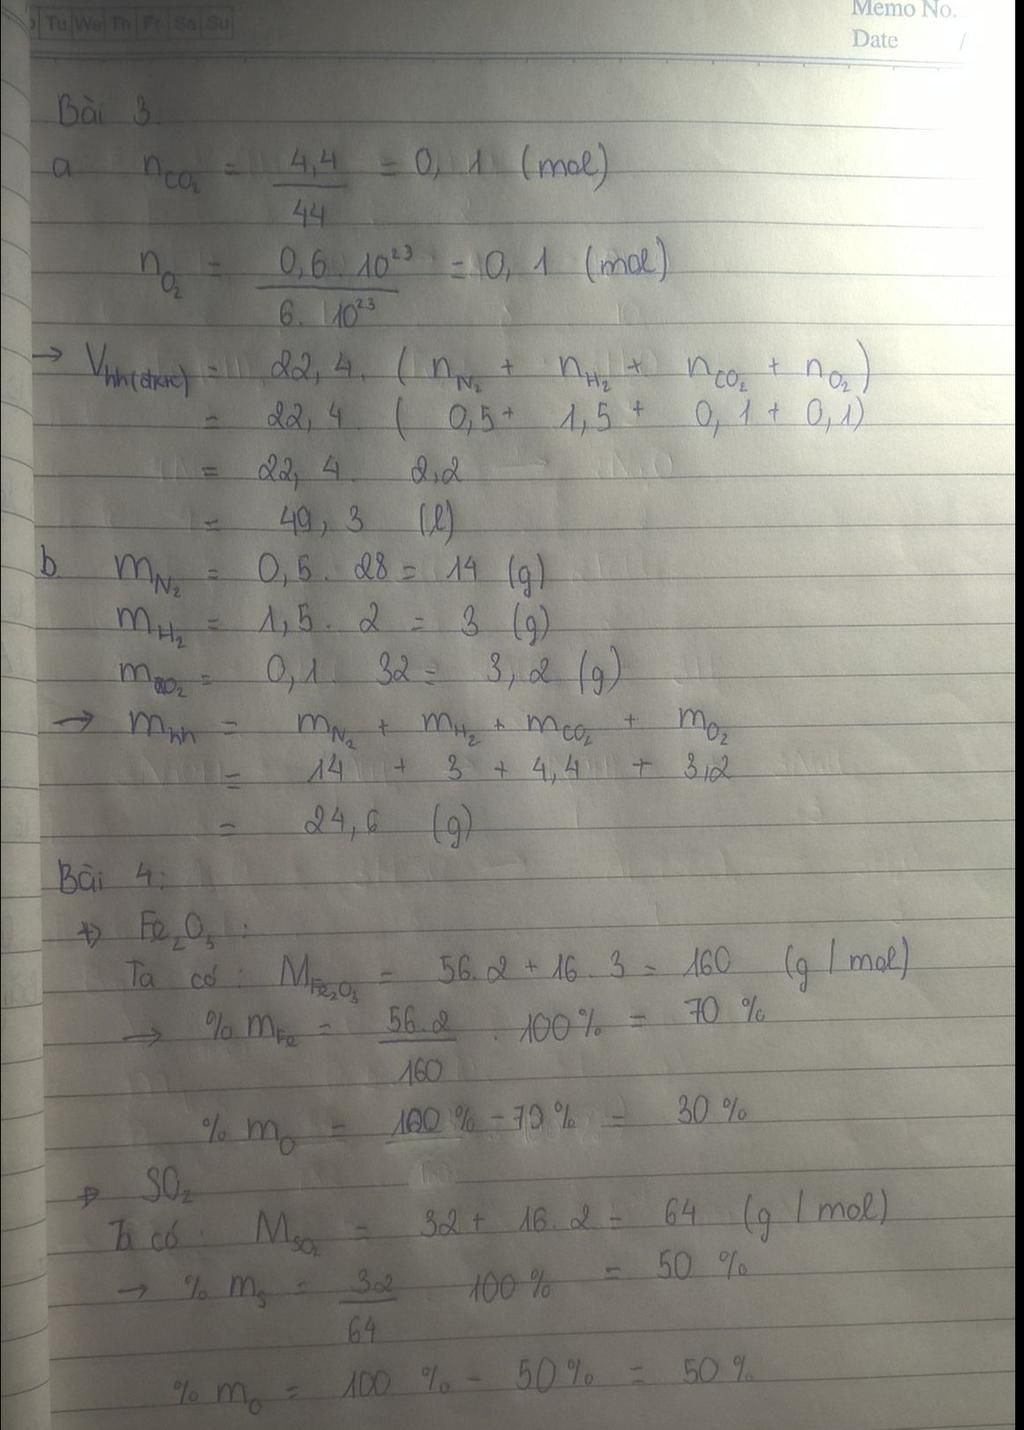 Tu We Th Fr Sa Su
Memo No.
Date /
Bài 3
a n_CO₂ = 4,4/44 = 0,1 (mol)
n_O₂ = 0,6 . 10²³ / 6 . 10²³ = 0,1 (mol)
→ V_hh(đktc) = 22,4 . (n_N₂ + n_H₂ + n_CO₂ + n_O₂)
= 22,4 (0,5 + 1,5 + 0,1 + 0,1)
= 22,4 . 2,2
= 49,3 (l)
b. m_N₂ = 0,5 . 28 = 14 (g)
m_H₂ = 1,5 . 2 = 3 (g)
m_O₂ = 0,1 . 32 = 3,2 (g)
→ m_hh = m_N₂ + m_H₂ + m_CO₂ + m_O₂
= 14 + 3 + 4,4 + 3,2
= 24,6 (g)
Bài 4:
+) Fe₂O₃ :
Ta có : M_Fe₂O₃ = 56.2 + 16.3 = 160 (g/mol)
→ % m_Fe = 56.2/160 . 100% = 70 %
% m_O = 100% - 70% = 30 %
+) SO₂
Ta có : M_SO₂ = 32 + 16.2 = 64 (g/mol)
→ % m_S = 32/64 . 100% = 50 %
% m_O = 100 % - 50 % = 50 %